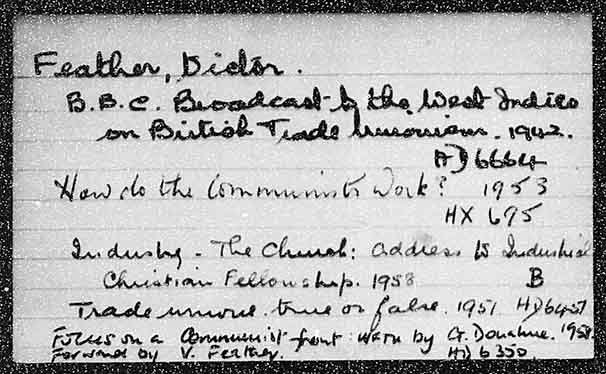 Feather, Victor.
B.B.C. Broadcast to the West Indies
on British Trade Unionism. 1942.
HD 6664
How do the Communists Work? 1953
HX 695
Industry - The Church: address to Industrial
Christian Fellowship. 1953 B
Trade unions. true or false. 1951 HD 6457
Focus on a Communist front: by G. Donahue. 1958.
Forward by V. Feather. HD 6350